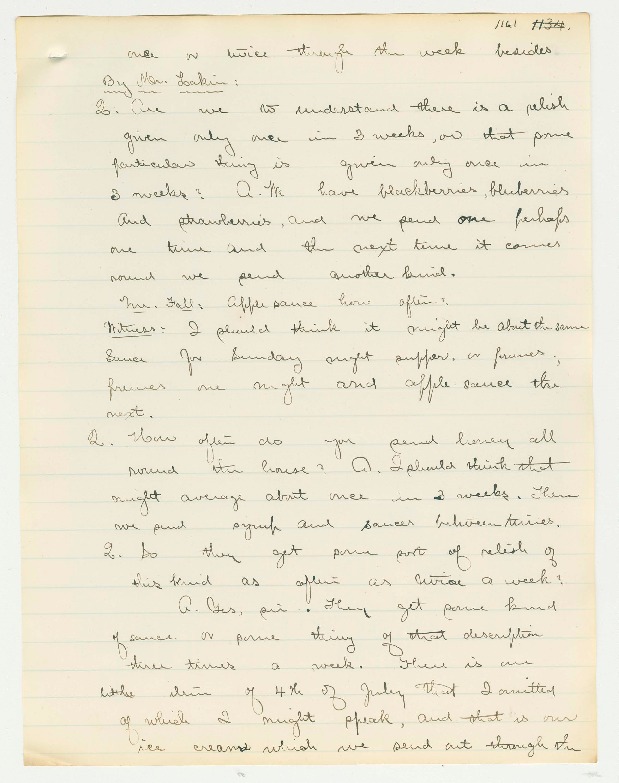 1161 1134.
once or twice through the week besides
By Mr. Eakin:
Q. Are we to understand there is a relish
given only once in 3 weeks, or that some
particular thing is given only once in
3 weeks? A. We have blackberries, bluberries
And strawberries, and we send one perhaps
one time and the next time it comes
round we send another kind.
Mr. Fall: Apple sauce how often?
Witness: I should think it might be about the same
Sauce for Sunday night supper. or prunes;
prunes one night and apple sauce the
next.
Q. How often do you send honey all
round the house? A. I should think that
might average about once in 3 weeks. Then
we send syrup and sauces between times.
Q. Do they get some sort of relish of
this kind as often as twice a week?
A. Yes, sir. They get some kind
of sauce or some thing of that description
three times a week. There is one
other item of 4th of July that I omitted
of which I might speak, and that is our
ice cream which we send out through the